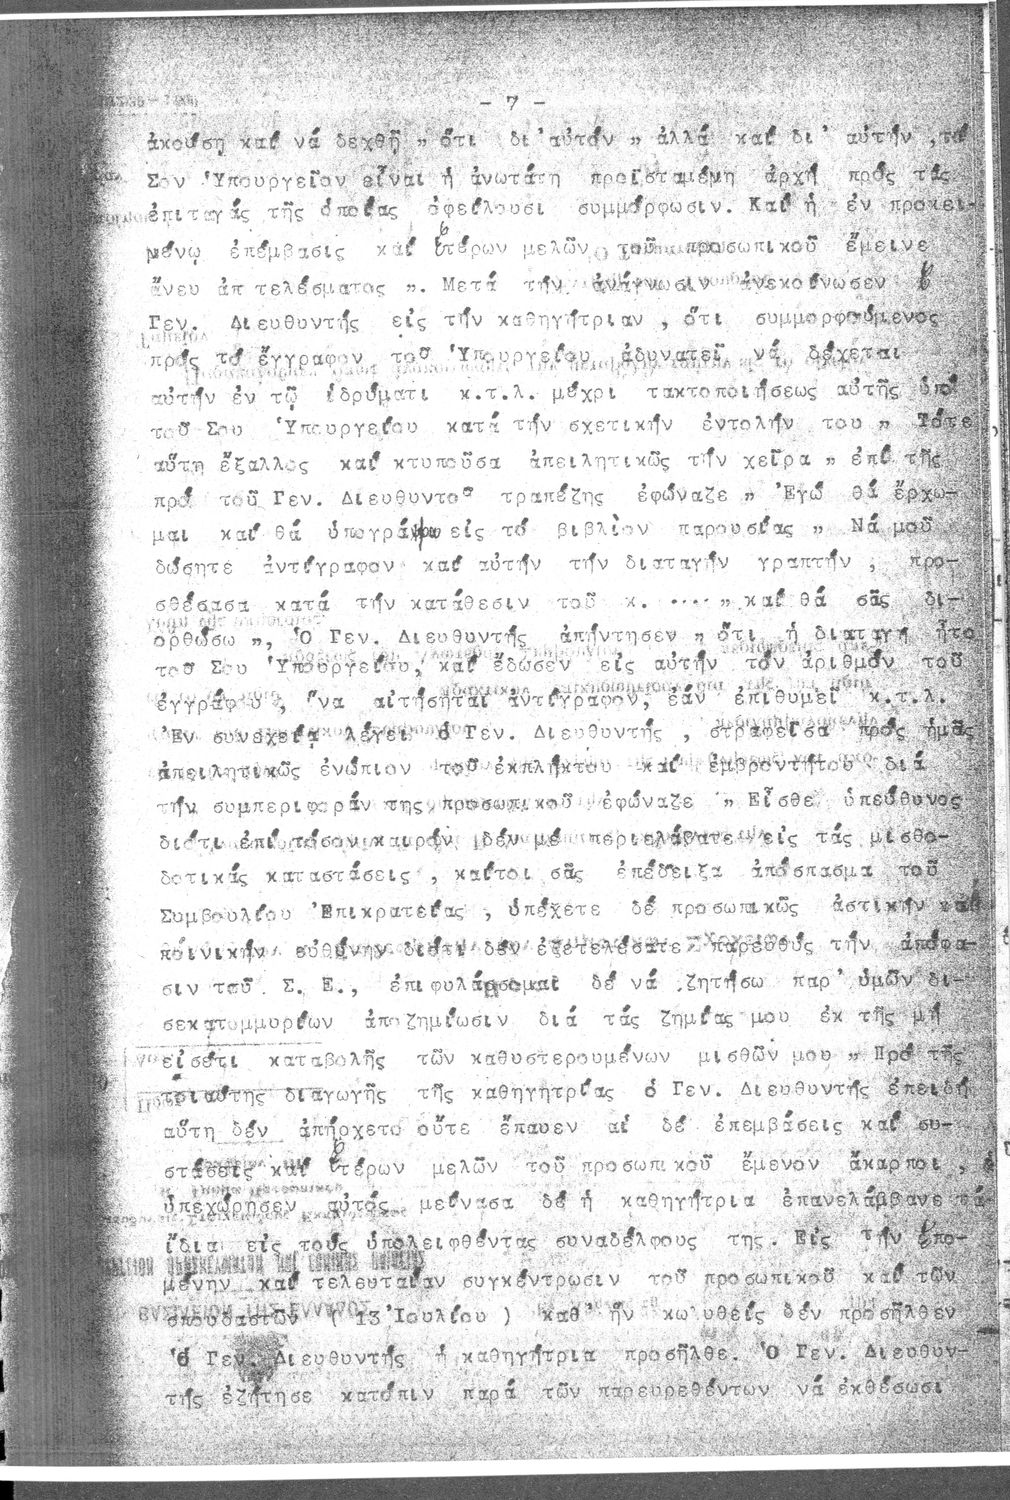 - 7 -
ἀκούση καί νά δεχθῆ " ὅτι δι' αὐτόν " ἀλλά καί δι' αὐτήν , τό
Σον Ὑπουργεῖον εἶναι ἡ ἀνωτάτη προϊσταμένη ἀρχή πρός τάς
ἐπιταγάς τῆς ὁποίας ὀφείλουσι συμμόρφωσιν. Καί ἡ ἐν προκει-
μένῳ ἐπέμβασις καί ἑτέρων μελῶν τοῦ προσωπικοῦ ἔμεινε
ἄνευ ἀπ τελέσματος ". Μετά τήν ἀνάγνωσιν ἀνεκοίνωσεν ὁ
Γεν. Διευθυντής εἰς τήν καθηγήτριαν , ὅτι συμμορφούμενος
πρός τό ἔγγραφον τοῦ Ὑπουργείου ἀδυνατεῖ νά δέχεται
αὐτήν ἐν τῷ ἱδρύματι κ.τ.λ. μέχρι τακτοποιήσεως αὐτῆς ὑπό
τοῦ Σου Ὑπουργείου κατά τήν σχετικήν ἐντολήν του " Τότε ,
αὕτη ἔξαλλος καί κτυποῦσα ἀπειλητικῶς τήν χεῖρα " ἐπί τῆς
πρό τοῦ Γεν. Διευθυντοῦ τραπέζης ἐφώναζε " Ἐγώ θά ἔρχω-
μαι καί θά ὑπογράψω εἰς τό βιβλίον παρουσίας " Νά μοῦ
δώσητε ἀντίγραφον καί αὐτήν τήν διαταγήν γραπτήν , προ-
σθέσασα κατά τήν κατάθεσιν τοῦ κ. .... " καί θά σᾶς δι-
ορθώσω ", Ὁ Γεν. Διευθυντής ἀπήντησεν " ὅτι ἡ διαταγή ἦτο
τοῦ Σου Ὑπουργείου, καί ἔδωσεν εἰς αὐτήν τόν ἀριθμόν τοῦ
ἐγγράφ υ , ἵνα αἰτήσηται ἀντίγραφον, ἐάν ἐπιθυμεῖ κ.τ.λ.
Ἐν συνεχείᾳ λέγει ὁ Γεν. Διευθυντής , στραφεῖσα πρός ἡμᾶς
ἀπειλητικῶς ἐνώπιον τοῦ ἐκπλήκτου καί ἐμβροντήτου διά
τήν συμπεριφοράν της προσωπικοῦ ἐφώναζε " Εἶσθε ὑπεύθυνος
διότι ἐπί τόσον καιρόν δέν μέ περιελάβατε εἰς τάς μισθο-
δοτικάς καταστάσεις , καίτοι σᾶς ἐπέδειξα ἀπόσπασμα τοῦ
Συμβουλίου Ἐπικρατείας , ὑπέχετε δέ προσωπικῶς ἀστικήν καί
ποινικήν εὐθύνην διότι δέν ἐξετελέσατε παρευθύς τήν ἀπόφα-
σιν τοῦ Σ. Ε., ἐπιφυλάσσομαι δέ νά ζητήσω παρ' ὑμῶν δι-
σεκατομμυρίων ἀποζημίωσιν διά τάς ζημίας μου ἐκ τῆς μή
εἰσέτι καταβολῆς τῶν καθυστερουμένων μισθῶν μου " Πρό τῆς
τοιαύτης διαγωγῆς τῆς καθηγητρίας ὁ Γεν. Διευθυντής ἐπειδή
αὕτη δέν ἀπήρχετο οὔτε ἔπαυεν αἱ δέ ἐπεμβάσεις καί συ-
στάσεις καί ἑτέρων μελῶν τοῦ προσωπικοῦ ἔμενον ἄκαρποι ,
ὑπεχώρησεν αὐτός μείνασα δέ ἡ καθηγήτρια ἐπανελάμβανε τά
ἴδια εἰς τούς ὑπολειφθέντας συναδέλφους της. Εἰς τήν ἑπο-
μένην καί τελευταίαν συγκέντρωσιν τοῦ προσωπικοῦ καί τῶν
σπουδαστῶν ( 13 Ἰουλίου ) καθ' ἥν κωλυθείς δέν προσῆλθεν
Ὁ Γεν. Διευθυντής ἡ καθηγήτρια προσῆλθε. Ὁ Γεν. Διευθυν-
τής ἐζήτησε κατόπιν παρά τῶν παρευρεθέντων νά ἐκθέσωσι